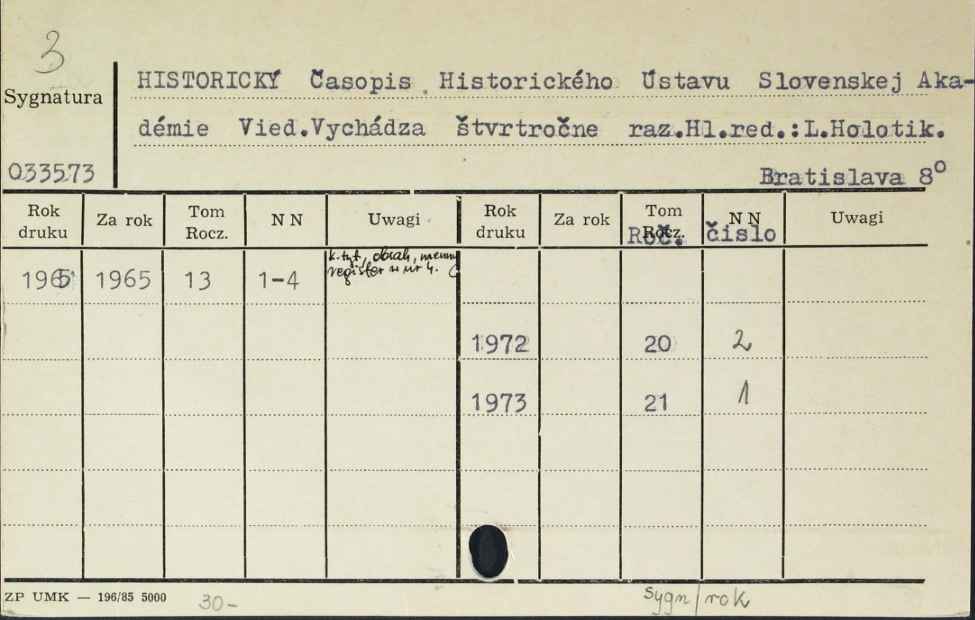 3
HISTORICKÝ Časopis Historického Ústavu Slovenskej Aka-
Sygnatura
démie Vied.Vychádza štvrtročne raz.Hl.red.:L.Holotik.
033573 Bratislava 8º
Rok druku Za rok Tom Rocz. N N Uwagi Rok druku Za rok Tom Rocz. N N Uwagi
Roč. čislo
k.tyt, obsah, menny
register w nr 4.
1965 1965 13 1-4
1972 20 2
1973 21 1
ZP UMK — 196/85 5000 30- sygn/rok